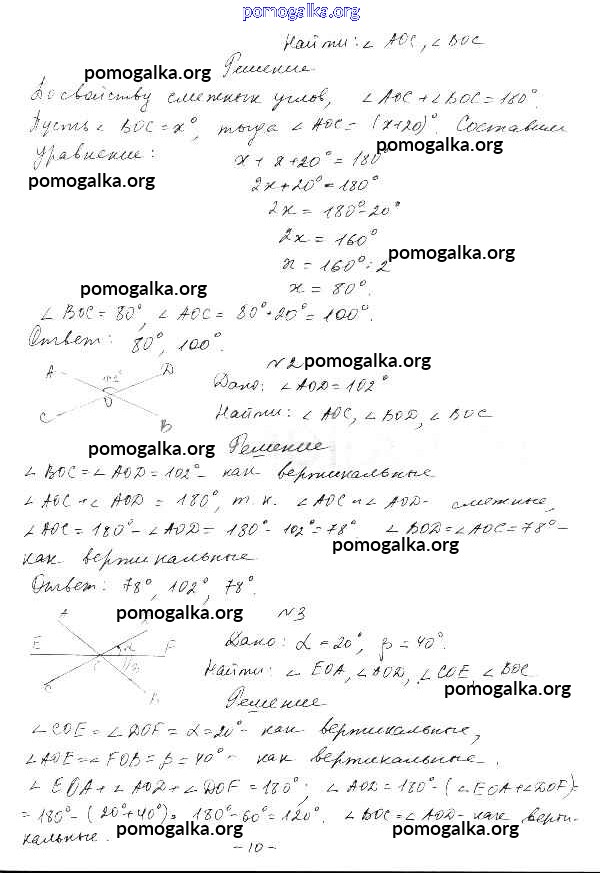 pomogalka.org
Найти: ∠ AOC, ∠ BOC
pomogalka.org Решение
По свойству смежных углов, ∠ AOC + ∠ BOC = 180°.
Пусть ∠ BOC = x°, тогда ∠ AOC = (x+20)°. Составим
pomogalka.org
уравнение: x + x + 20° = 180°
pomogalka.org 2x + 20° = 180°
2x = 180° - 20°
2x = 160°
pomogalka.org
x = 160° : 2
pomogalka.org x = 80°.
∠ BOC = 80°, ∠ AOC = 80° + 20° = 100°.
Ответ: 80°, 100°.
N2 pomogalka.org
A 102° D O C B
Дано: ∠ AOD = 102°
Найти: ∠ AOC, ∠ BOD, ∠ BOC
pomogalka.org Решение
∠ BOC = ∠ AOD = 102° - как вертикальные
∠ AOC + ∠ AOD = 180°, т.к. ∠ AOC и ∠ AOD - смежные,
∠ AOC = 180° - ∠ AOD = 180° - 102° = 78° ∠ BOD = ∠ AOC = 78° -
pomogalka.org
как вертикальные
Ответ: 78°, 102°, 78°.
pomogalka.org N3
A E α F B
Дано: α = 20°, β = 40°.
Найти: ∠ EOA, ∠ AOD, ∠ COE ∠ BOC
pomogalka.org
Решение
∠ COE = ∠ DOF = α = 20° - как вертикальные,
∠ AOE = ∠ FOB = β = 40° - как вертикальные.
∠ EOA + ∠ AOD + ∠ DOF = 180°; ∠ AOD = 180° - (∠ EOA + ∠ DOF) =
= 180° - (20° + 40°) = 180° - 60° = 120°. ∠ BOC = ∠ AOD - как верти-
кальные. pomogalka.org pomogalka.org
- 10 -